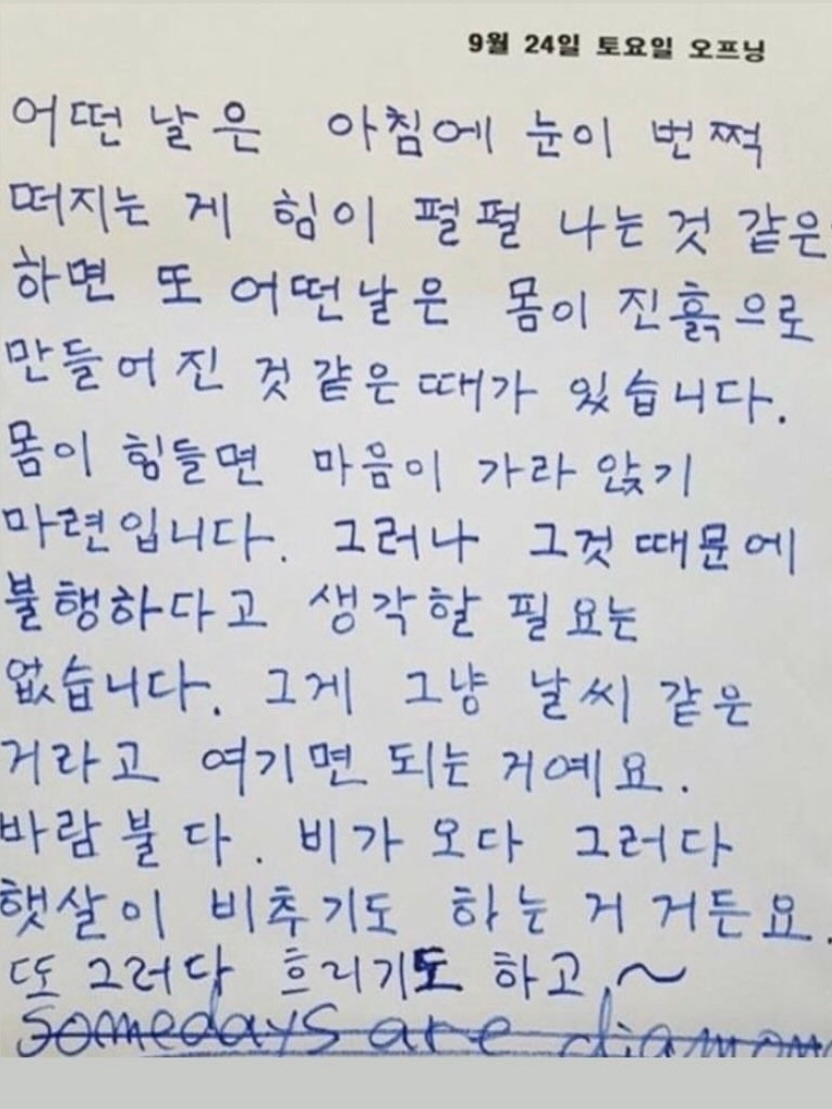 9월 24일 토요일 오프닝
어떤 날은 아침에 눈이 번쩍
떠지는 게 힘이 펄펄 나는 것 같은
하면 또 어떤날은 몸이 진흙으로
만들어 진 것 같은 때가 있습니다.
몸이 힘들면 마음이 가라 앉기
마련입니다. 그러나 그것 때문에
불행하다고 생각할 필요는
없습니다. 그게 그냥 날씨 같은
거라고 여기면 되는 거예요.
바람 불다. 비가 오다 그러다
햇살이 비추기도 하는 거 거든요.
또 그러다 흐리기도 하고,~
somedays are diamon